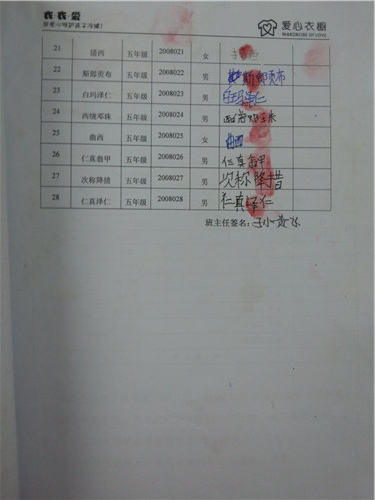 衣衣爱
爱心衣橱
WARDROBE OF LOVE
21 清西 五年级 2008021 女
22 斯郎贡布 五年级 2008022 男 斯郎贡布
23 白玛泽仁 五年级 2008023 男 白玛泽仁
24 西绕邓珠 五年级 2008024 男
25 曲西 五年级 2008025 女 曲西
26 仁真翁甲 五年级 2008026 男 仁真翁甲
27 次称降措 五年级 2008027 男 次称降措
28 仁真泽仁 五年级 2008028 男 仁真泽仁
班主任签名：